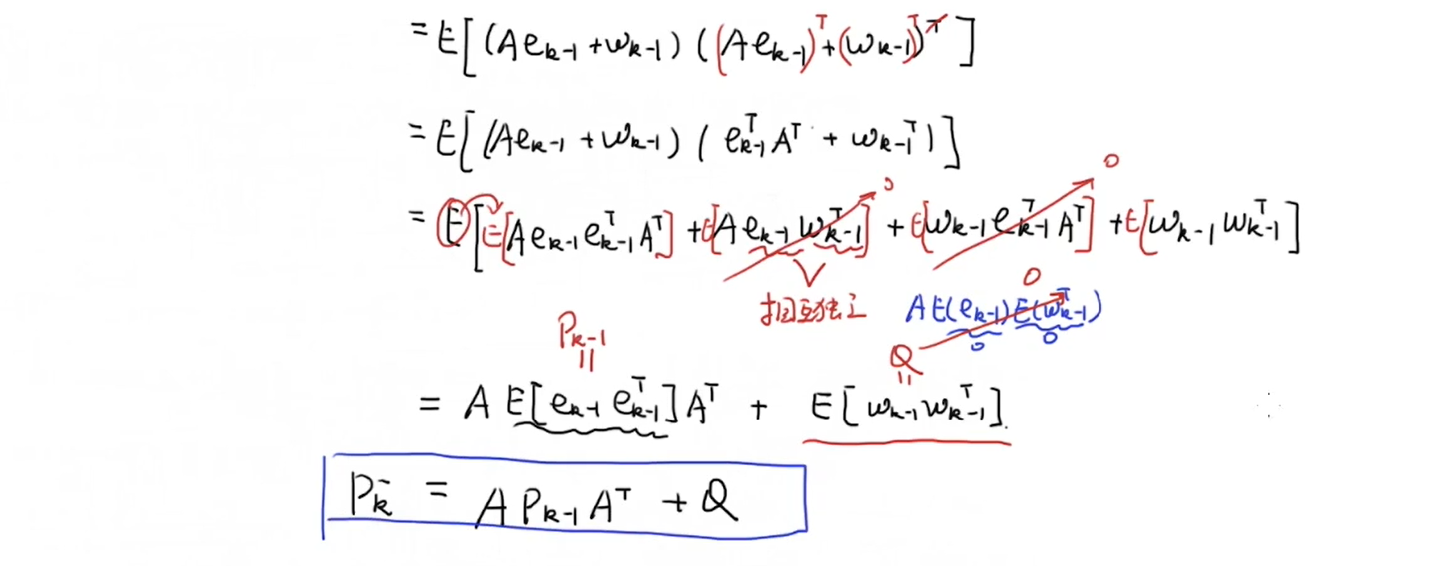 = E[(Ae_{k-1} + w_{k-1})((Ae_{k-1})^T + (w_{k-1})^T)^T]
= E[(Ae_{k-1} + w_{k-1})(e_{k-1}^T A^T + w_{k-1}^T)]
= E[E[Ae_{k-1}e_{k-1}^T A^T] + E[Ae_{k-1}w_{k-1}^T] + E[w_{k-1}e_{k-1}^T A^T] + E[w_{k-1}w_{k-1}^T]]
0 0
相互独立 AE(e_{k-1})E(w_{k-1}^T) 0
0 0
P_{k-1} Q
= A E[e_{k-1}e_{k-1}^T]A^T + E[w_{k-1}w_{k-1}^T]
P_k^- = AP_{k-1}A^T + Q